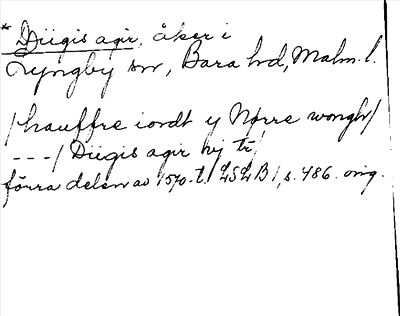 * Diigis agir, åker i
Lyngby sn, Bara hd, Malm. l.
/hauffre iordt y Nørre wongh/
---/ Diigis agir iij tr/
förra delen av 1570-t. LSLB 1, s. 486. orig.